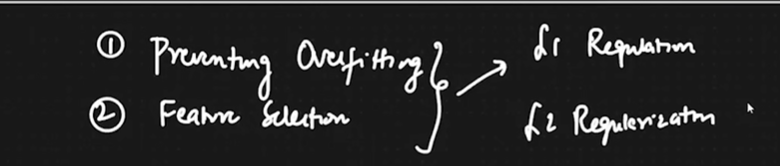 ① Preventing Overfitting
② Feature Selection
L1 Regulation
L2 Regularization